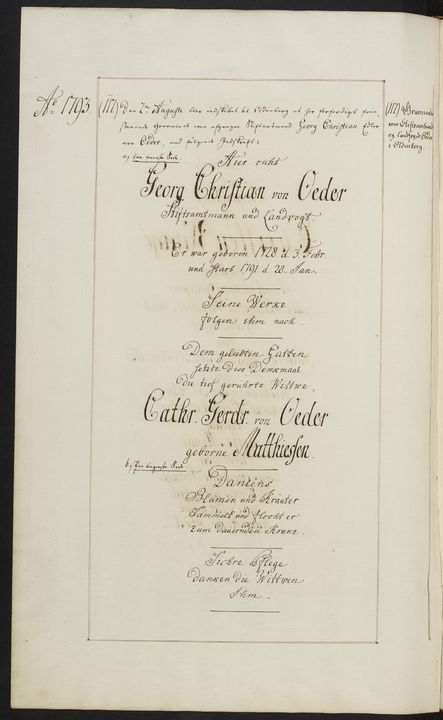 Aº 1793.
(171) Den 7de Augusti blev indskibet til Oldenborg et her forfærdiget
Monument over Georg Christian Edler
von Oeder, med følgende Indskrift:
a) paa høyre Side.
Hier ruht
Georg Christian von Oeder
Stiftsamtmann und Landvogt.
Er war geboren 1728 d. 3. Febr.
und starb 1791 d. 28. Jan.
Seine Werke
folgen ihm nach.
Dem geliebten Gatten
setzte dies Denkmaal
die tief gerührte Wittwe,
Cathr. Gerdr. von Oeder
geborne Matthiessen.
b) paa Side
Daniens
Blumen und Kräuter
Sammelt und flocht er
zum dauernden Kranz.
Sichre Pflege
danken die Wittwen
Ihm.
(171) Monument
over Stiftsamtmand
og Landfoged Oeder
i Oldenborg.